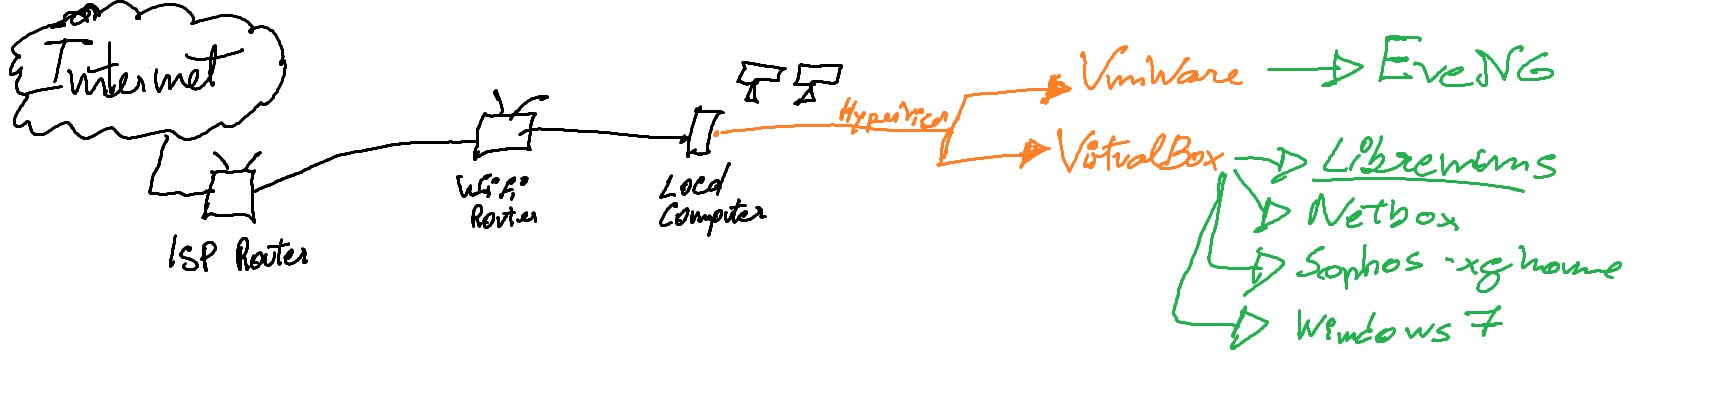 Internet
ISP Router
Wifi
Router
Local
Computer
Hypervisor
VmWare
EveNG
VirtualBox
Librenms
Netbox
Sophos -xg home
Windows 7